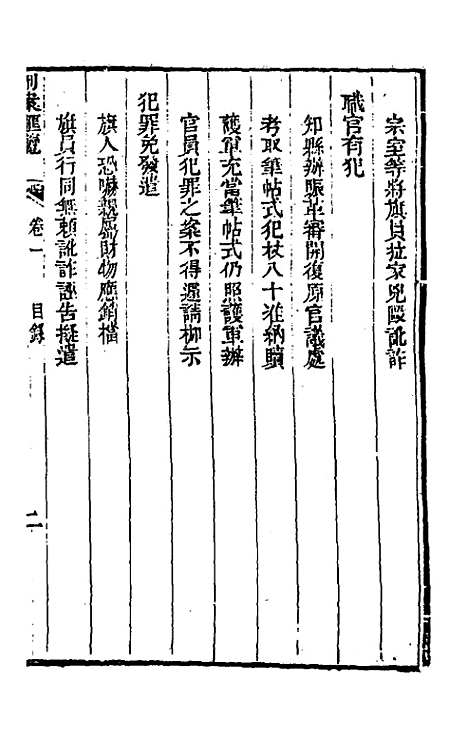 宗室等將旗員拉家兇毆訛詐
職官有犯
知縣辦賑革審開復原官議處
考取筆帖式犯杖八十准納贖
護軍充當筆帖式仍照護軍辦
官員犯罪之案不得遽請枷示
犯罪免發遣
旗人恐嚇親屬財物應銷檔
旗員行同無賴訛詐誣告擬遣
刑案匯覽 卷一 目錄 二